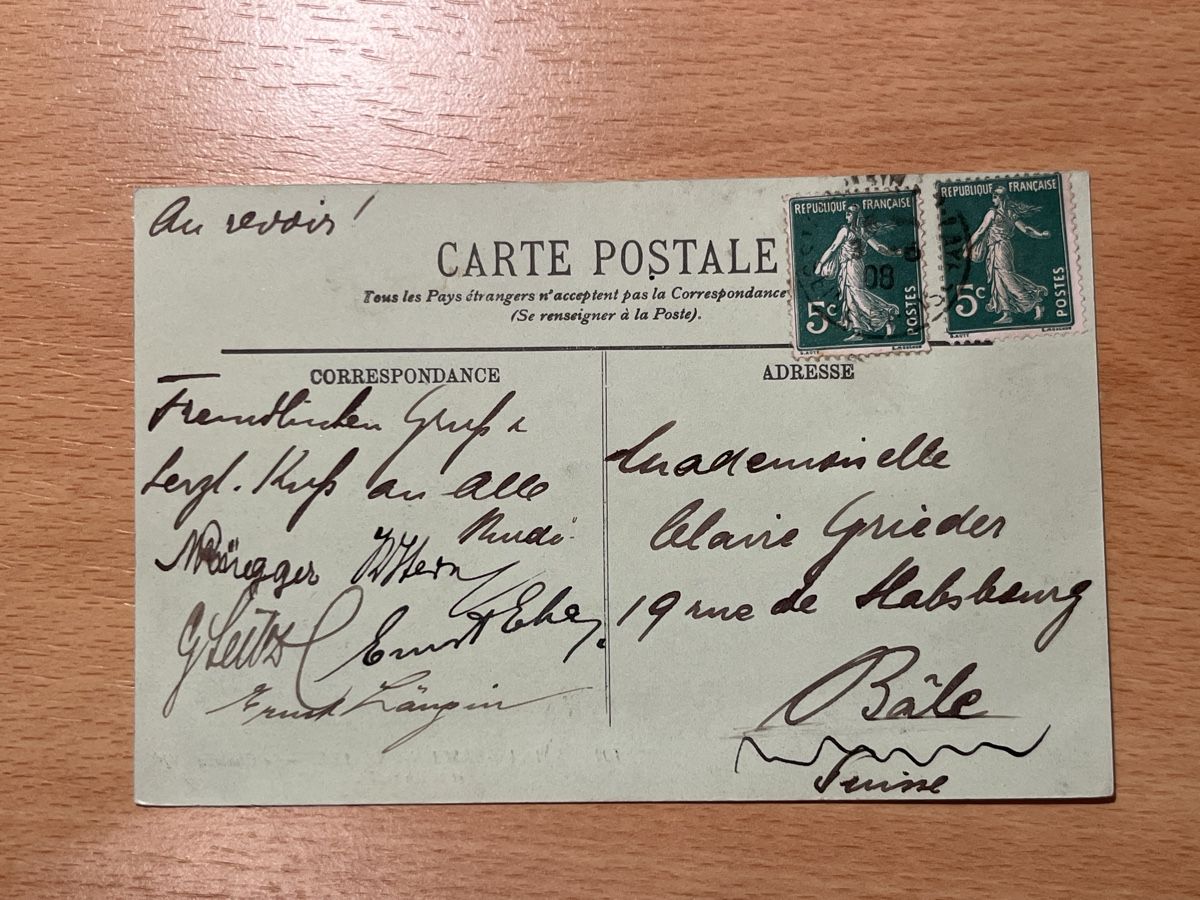 Au revoir!
CARTE POSTALE
Tous les Pays étrangers n'acceptent pas la Correspondance
(Se renseigner à la Poste).
REPUBLIQUE FRANÇAISE
08
5c POSTES
REPUBLIQUE FRANÇAISE
5c POSTES
CORRESPONDANCE
Freundlichen Gruß &
herzl. Kuß an alle
Rudi
Rüegger
Ernst
Ernst
ADRESSE
Mademoiselle
Claire Grieder
19 rue de Habsbourg
Bâle
Suisse